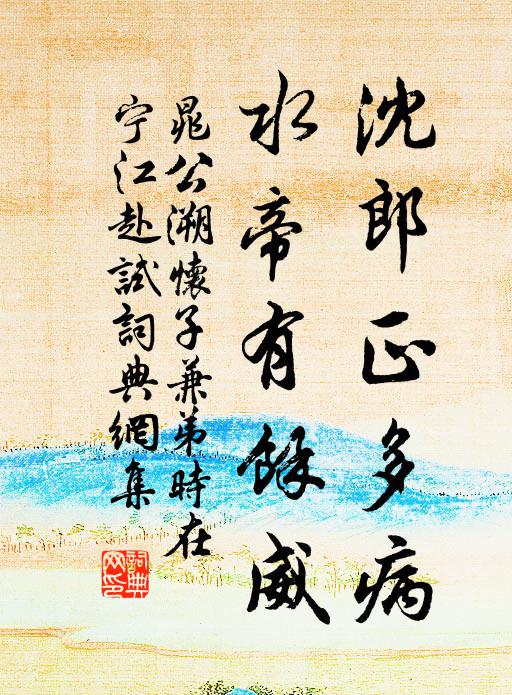 沈郎正多病
水帝有餘威
晁公溯懷子兼弟時在
宁江赴試詞典網集
詞典
网印